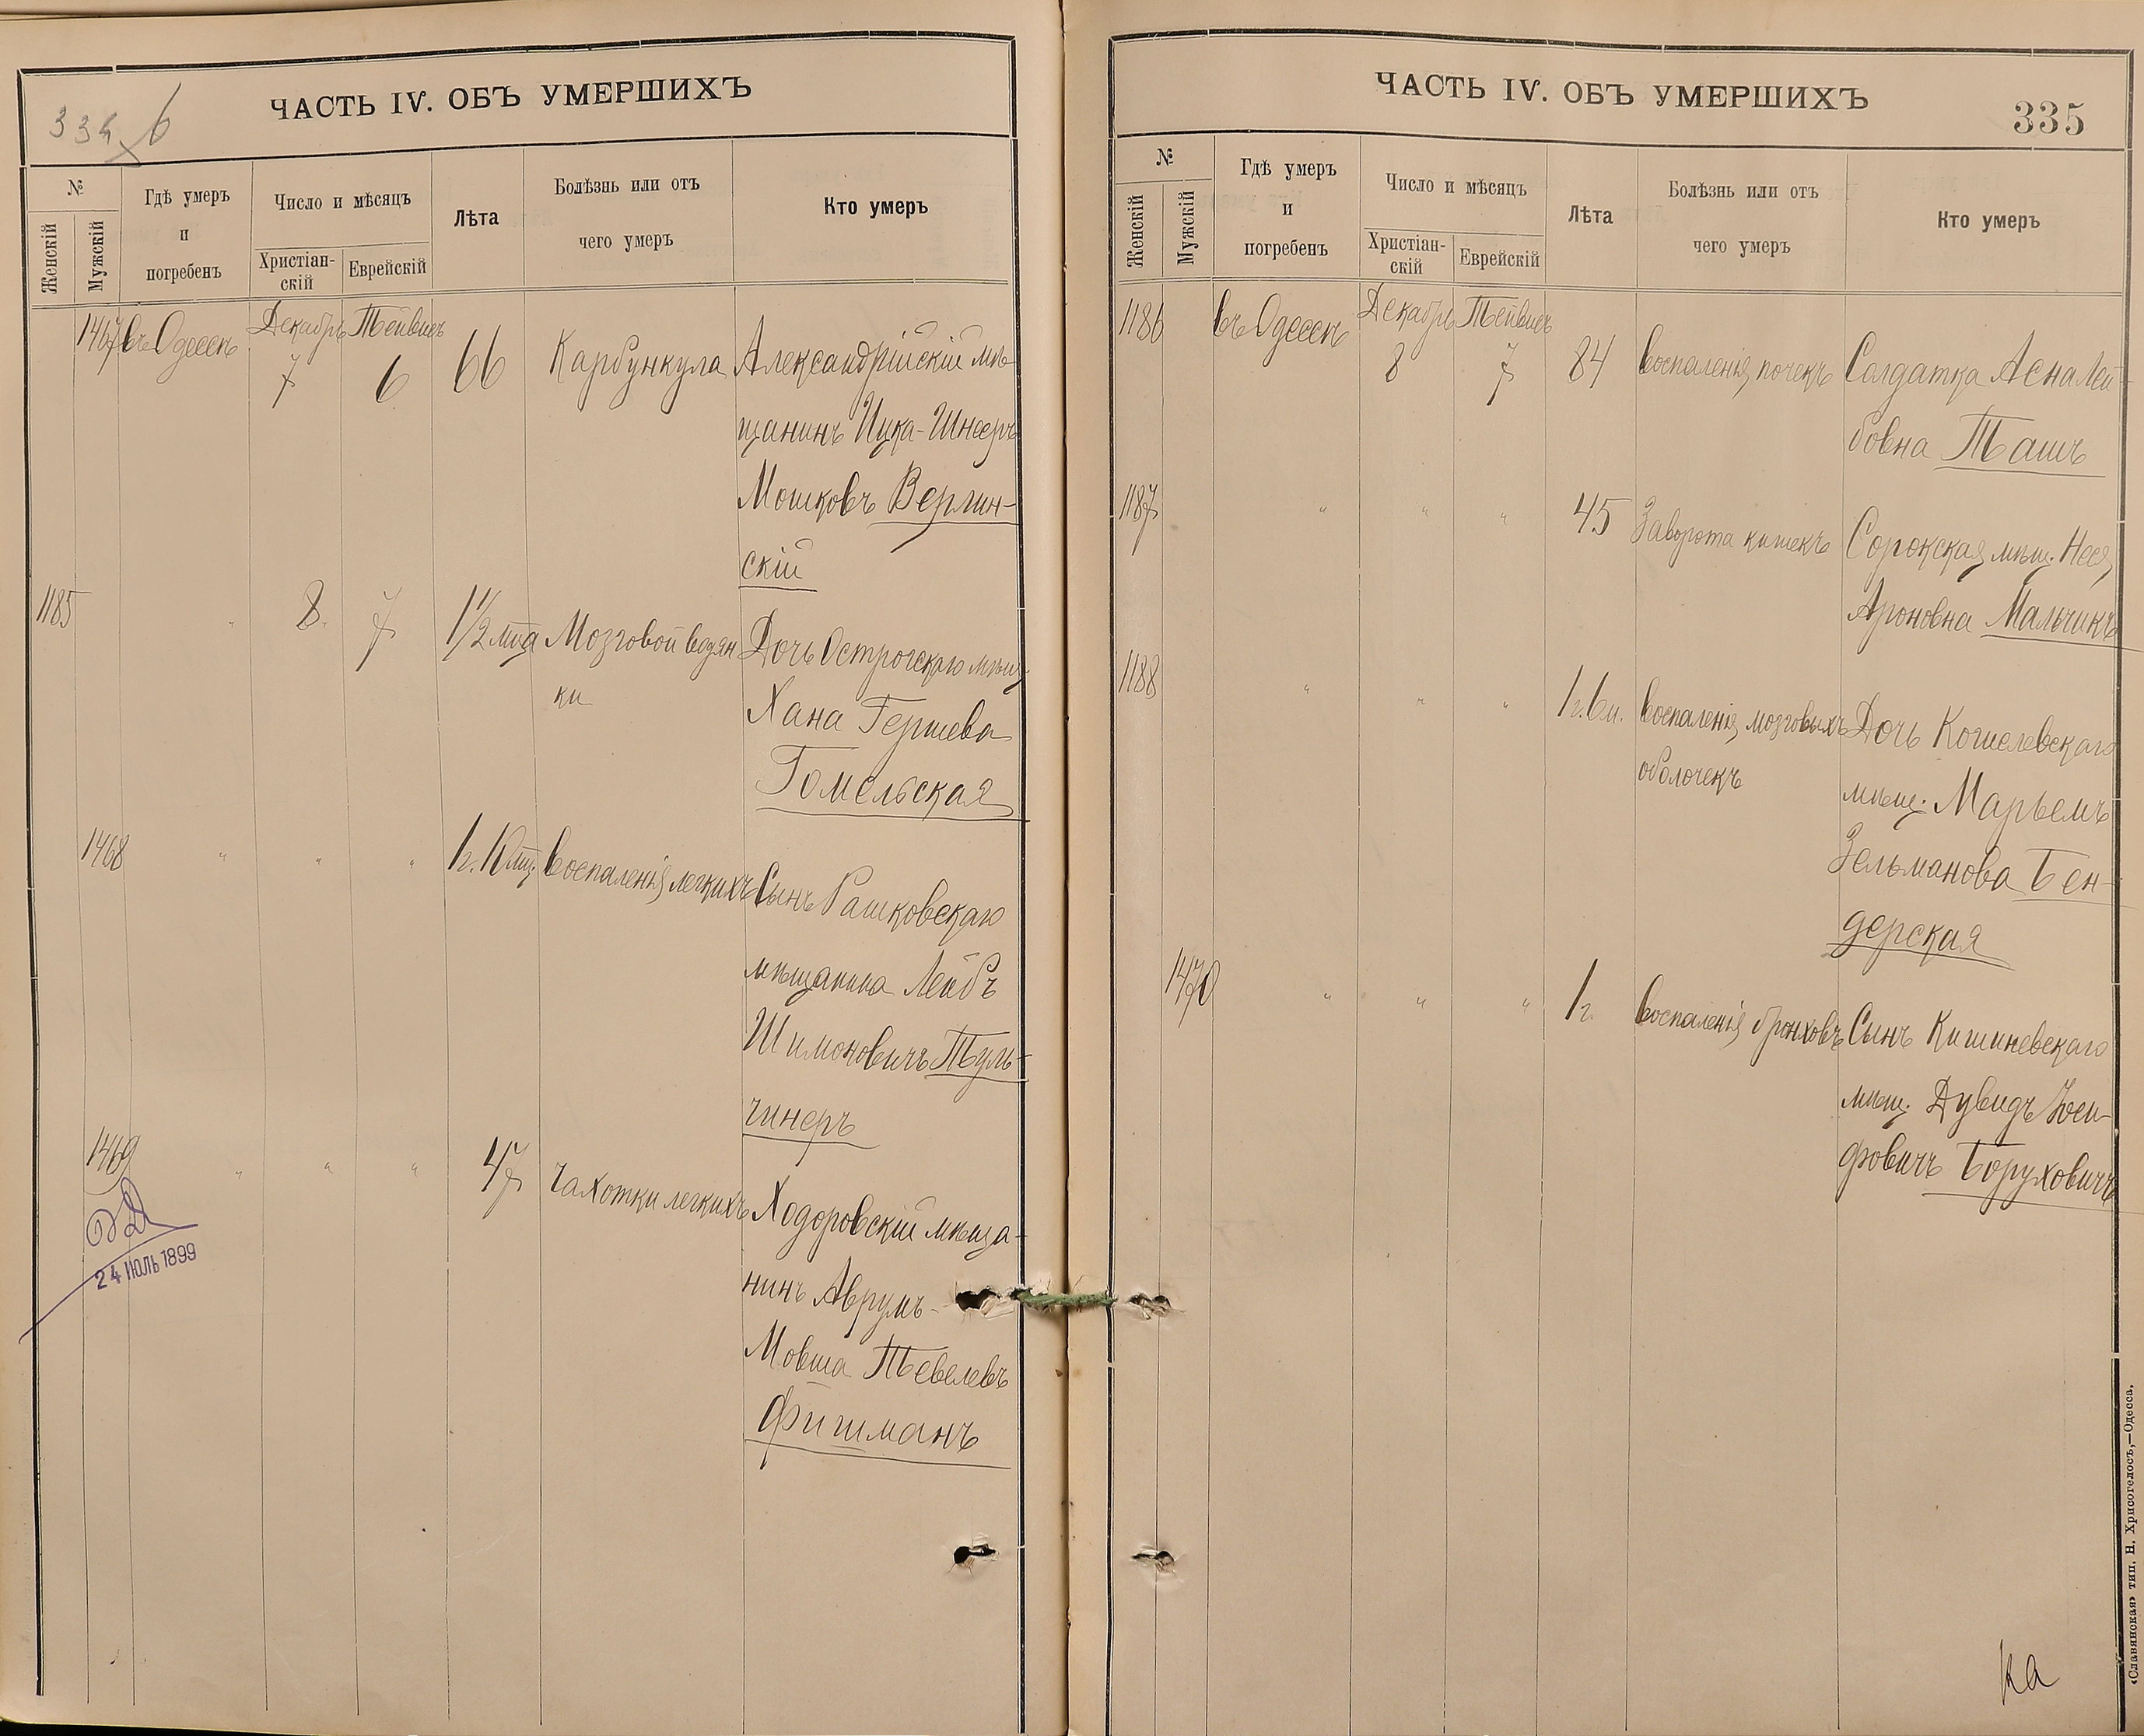 334 б
ЧАСТЬ IV. ОБЪ УМЕРШИХЪ
№
Женскій
Мужскій
Гдѣ умеръ
и
погребенъ
Число и мѣсяцъ
Христіан-
скій
Еврейскій
Лѣта
Болѣзнь или отъ
чего умеръ
Кто умеръ
1467 въ Одессѣ Декабрь Тейвисъ
7 6 66 Карбункула Александрійскій мѣ-
щанинъ Ицка-Шнееръ
Мошковъ Верлин-
скій
1185 " 8. 7 1 1/2 мца Мозговой водян Дочь Острогскаго мѣщ.
ки Хана Гершева
Гомельская
1468 " " " 1г. 10мц. Воспаленія легкихъ Сынъ Рашковскаго
мѣщанина Лейбъ
Шимоновичъ Туль-
чинеръ
1469 " " " 47 Чахотки легкихъ Ходоровскій мѣща-
нинъ Аврумъ-
Мовша Тевелевъ
Фишманъ
24 ІЮЛЬ 1899
ЧАСТЬ IV. ОБЪ УМЕРШИХЪ
335
№
Женскій
Мужскій
Гдѣ умеръ
и
погребенъ
Число и мѣсяцъ
Христіан-
скій
Еврейскій
Лѣта
Болѣзнь или отъ
чего умеръ
Кто умеръ
1186 въ Одессѣ Декабрь Тейвисъ
8 7 84 Воспаленія почекъ Солдатка Асна Лей-
бовна Ташъ
1187 " " " 45 Заворота кишекъ Сорокская мѣщ. Неся
Ароновна Мальчикъ
1188 " " " 1г. 6м. Воспаленія мозговыхъ Дочь Когилевскаго
оболочекъ мѣщ. Марьемъ
Зельманова Бен-
дерская
1470 " " " 1г. Воспаленія бронховъ Сынъ Кишиневскаго
мѣщ. Дувидъ Іоси-
фовичъ Боруховичъ
ка
«Славянская» тип. Н. Хрисогелосъ,—Одесса.